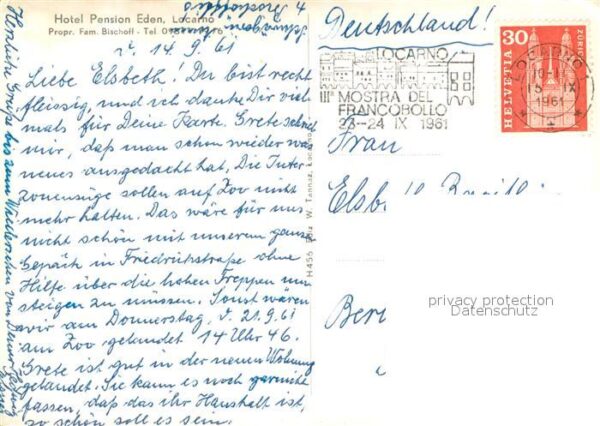 Hotel Pension Eden, Locarno
Propr. Fam. Bischoff - Tel.
14.9.61
Liebe Elsbeth! Du bist recht
fleissig, und ich danke Dir viel-
mals für Deine Karte. Grete schrieb
mir, daß man schon wieder was
neues ausgedacht hat. Die Inter-
zonenzüge sollen auf Zoo nicht
mehr halten. Das wäre für uns
nicht schön mit unserem ganzen
Gepäck in Friedrichstraße ohne
Hilfe über die hohen Treppen
steigen zu müssen. Sonst wären
wir am Donnerstag, d. 21.9.61
am Zoo gelandet 14 Uhr 46.
Grete ist gut in der neuen Wohnung
gelandet. Sie kann es noch garnicht
fassen, daß das ihr Haushalt ist,
so schön soll es sein.
Herzliche Grüsse bis zum Wiedersehen von Deiner
Deutschland!
LOCARNO
IIIª MOSTRA DEL
FRANCOBOLLO
23-24 IX 1961
30
HELVETIA
ZÜRICH
LOCARNO 1
15. IX
1961
Frau
Elsb
Ber
H 456
W. Tannaz, Locarno
privacy protection
Datenschutz